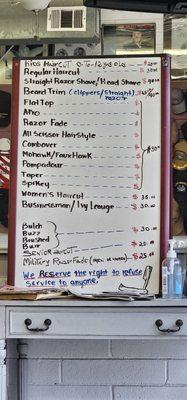 Kids Haircut 0-to-12 yrs old $20
Regular Haircut $30
Straight Razor Shave/Head Shave $
Beard Trim (clippers/straight razor)
Flat Top
Afro
Razor Fade
All Scissor Hairstyle
Combover
Mohawk/Faux Hawk $30
Pompadour
Taper
Spikey
Women's Haircut $35
Businessman/Ivy League $30
Butch
Buzz $30
Brushed
Burr $20
Senior cut $25
Military Razor Fade $25
We Reserve the right to refuse
service to anyone.